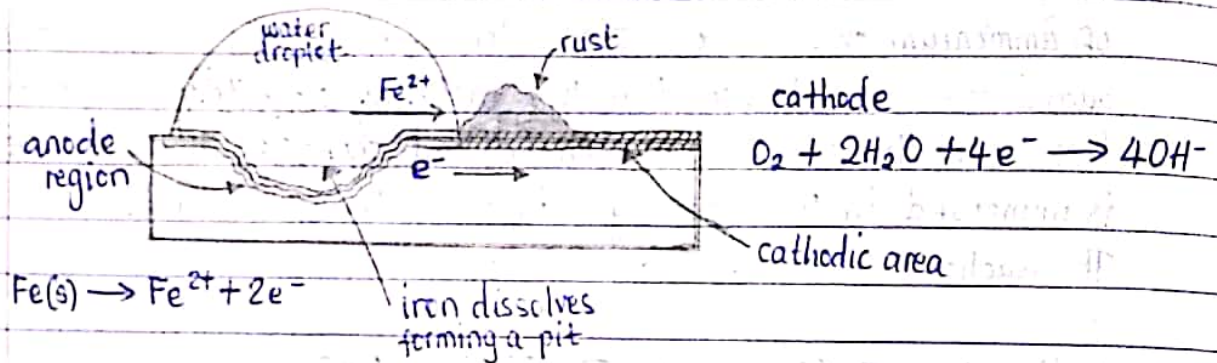 water
droplet
rust
Fe²⁺
cathode
anode
region
e⁻
O₂ + 2H₂O + 4e⁻ → 4OH⁻
cathodic area
Fe(s) → Fe²⁺ + 2e⁻
iron dissolves
forming a pit